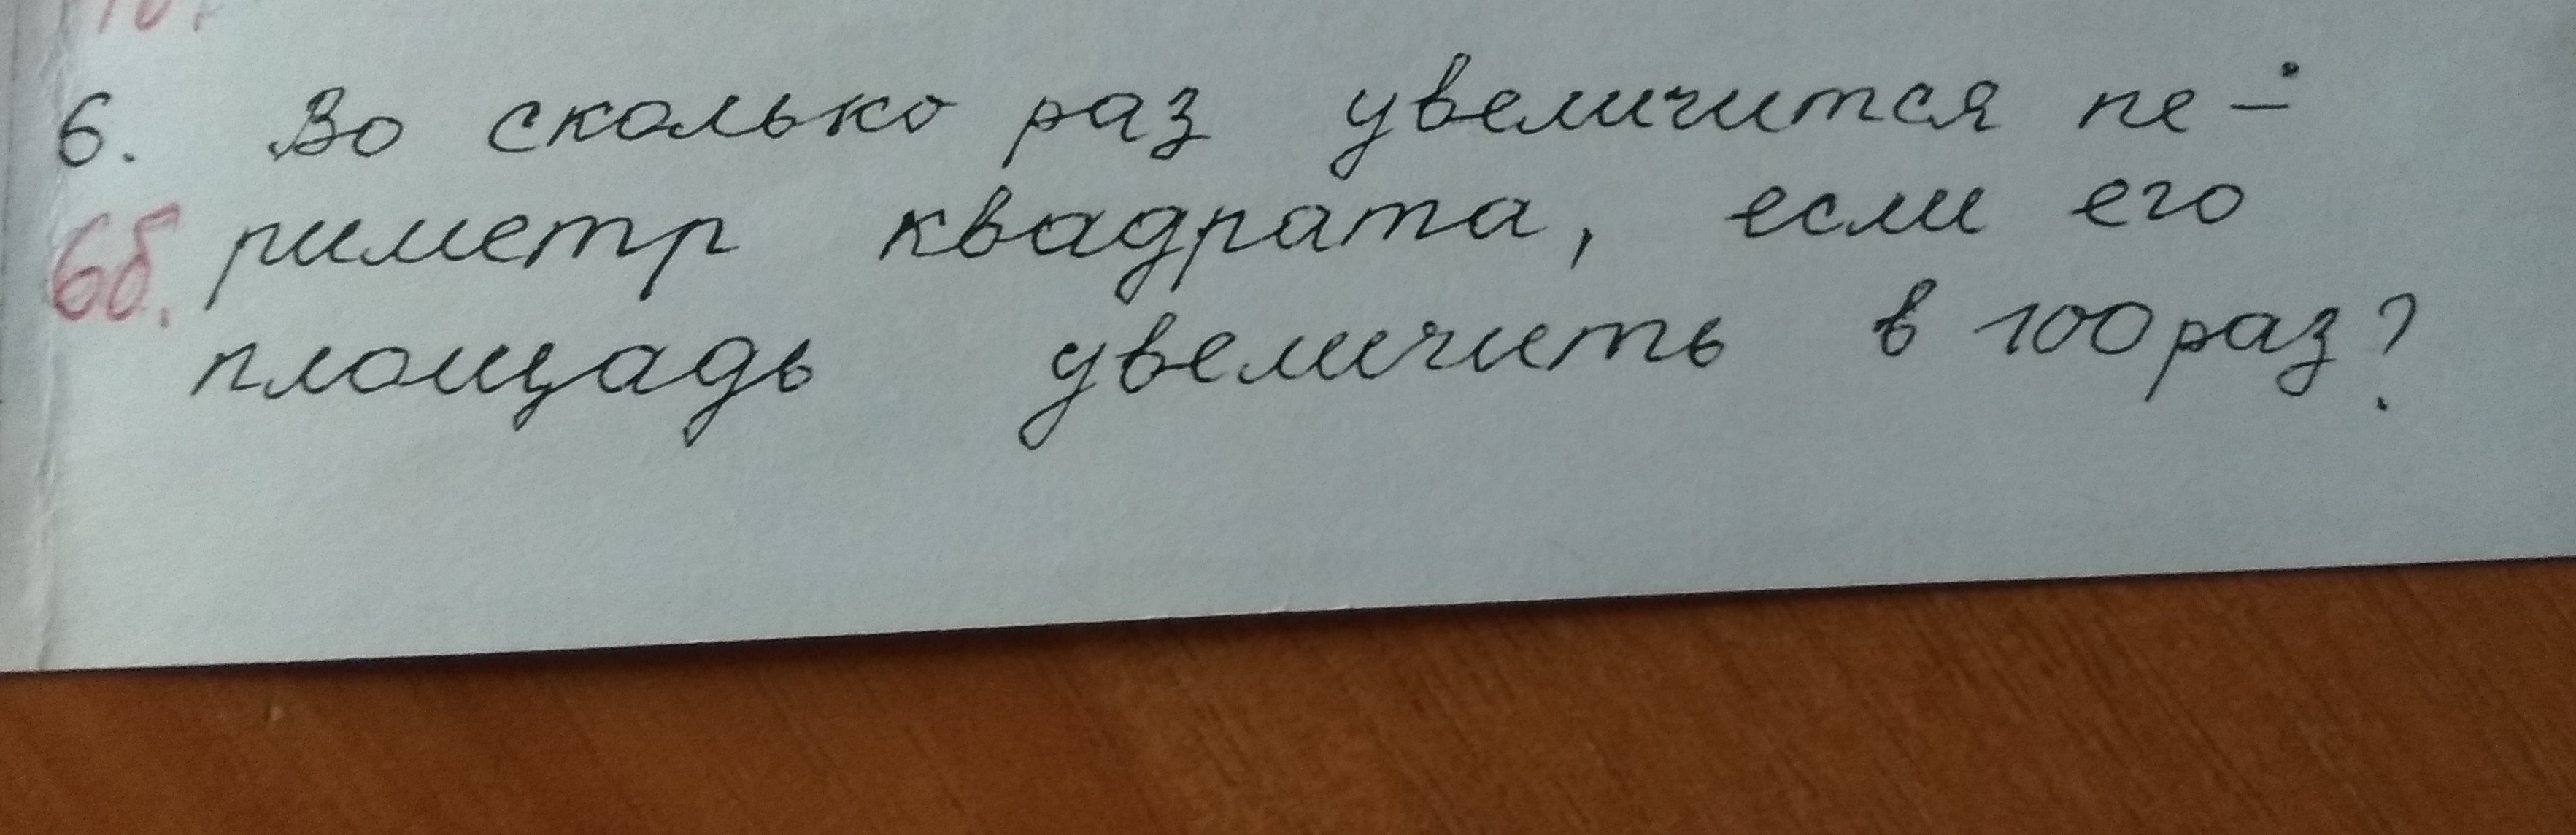 6. Во сколько раз увеличится пе-
6б. риметр квадрата, если его
площадь увеличить в 100 раз?